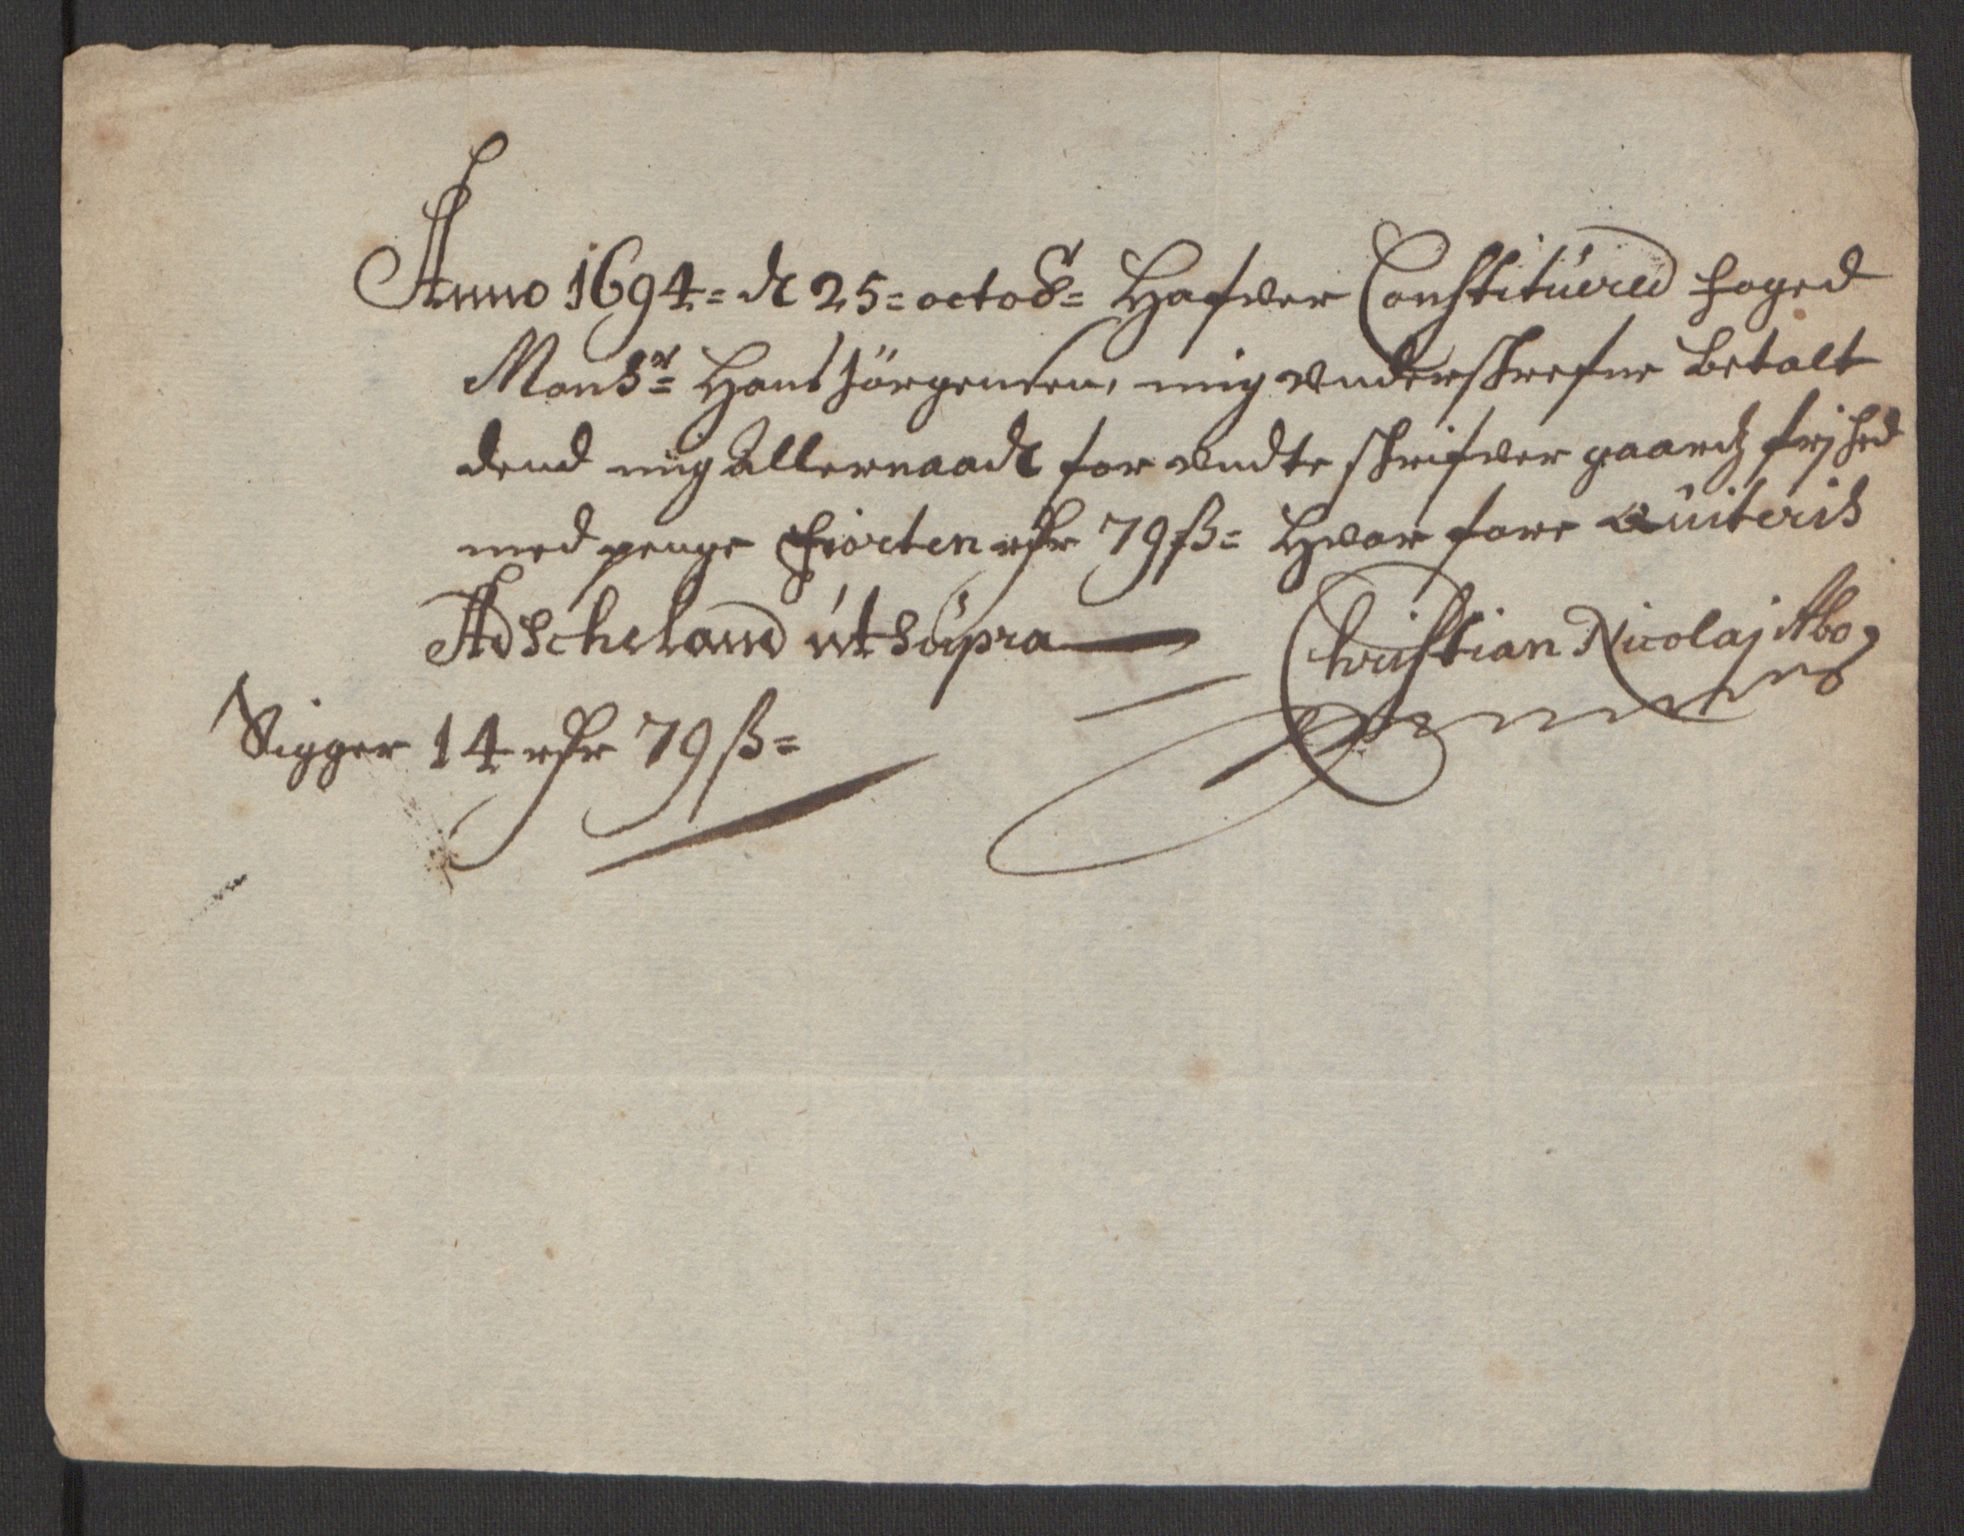 Anno 1694 = de 25 = octob = Hafver Constituered foged
Monsr = Hans Jörgensen, mig underskrefne betalt
dend mig Allernaadt for undte skrifver gaardz frjhed
med penge fiorten rdr 79 ß = Hvor fore Quiteris
Adscheland út súpra
Christian Nicolaj Abo
Sigger 14 rdr 79 ß =